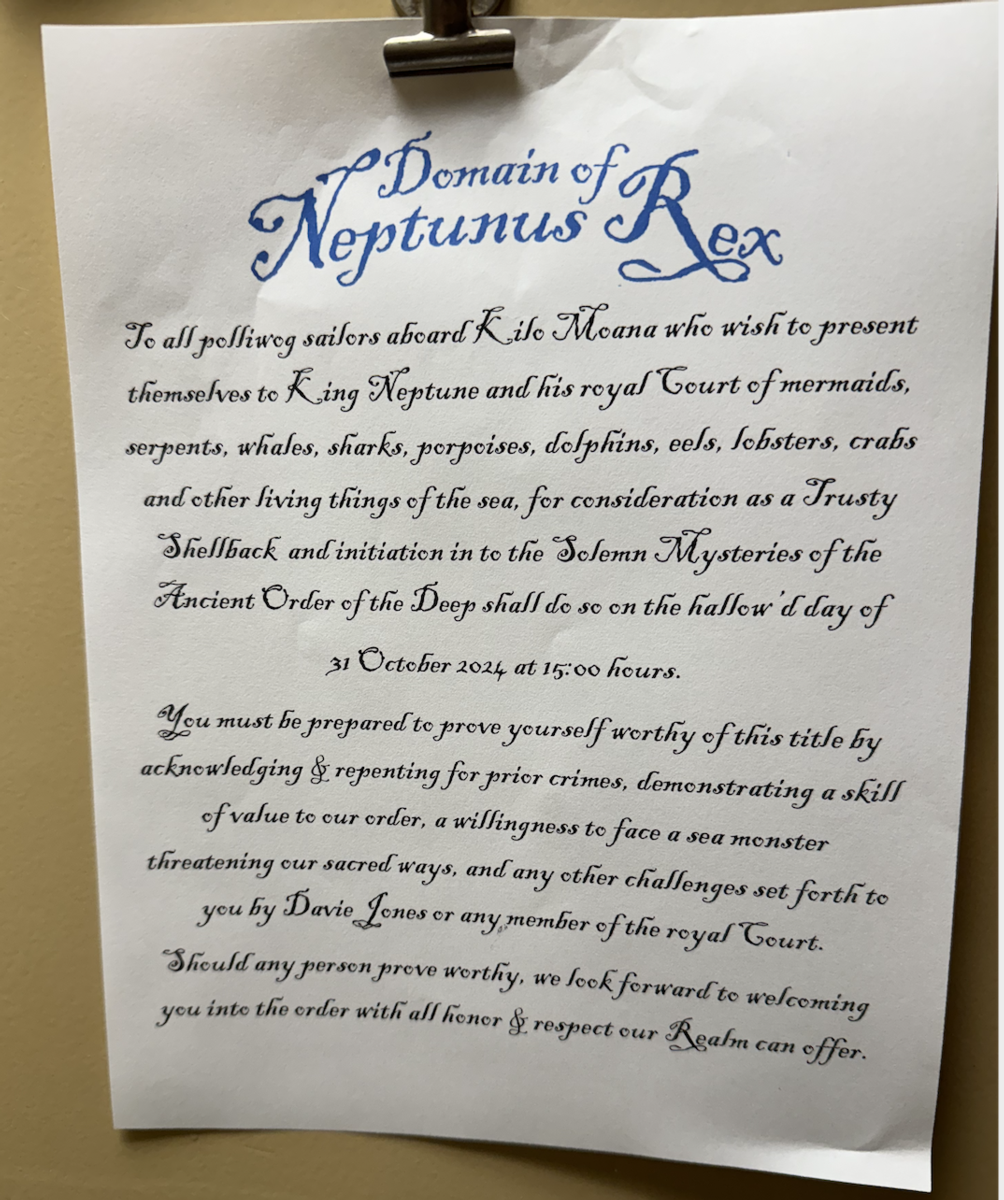 Domain of
Neptunus Rex
To all polliwog sailors aboard Kilo Moana who wish to present
themselves to King Neptune and his royal Court of mermaids,
serpents, whales, sharks, porpoises, dolphins, eels, lobsters, crabs
and other living things of the sea, for consideration as a Trusty
Shellback and initiation in to the Solemn Mysteries of the
Ancient Order of the Deep shall do so on the hallow'd day of
31 October 2024 at 15:00 hours.
You must be prepared to prove yourself worthy of this title by
acknowledging & repenting for prior crimes, demonstrating a skill
of value to our order, a willingness to face a sea monster
threatening our sacred ways, and any other challenges set forth to
you by Davie Jones or any member of the royal Court.
Should any person prove worthy, we look forward to welcoming
you into the order with all honor & respect our Realm can offer.